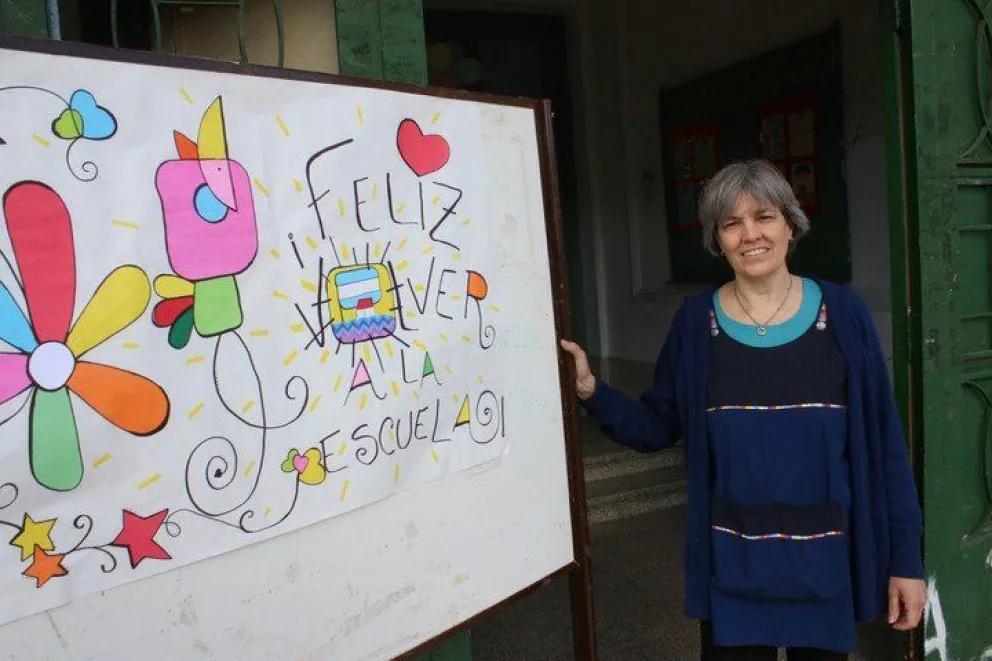 ¡FELIZ
VOLVER
A LA
ESCUELA!